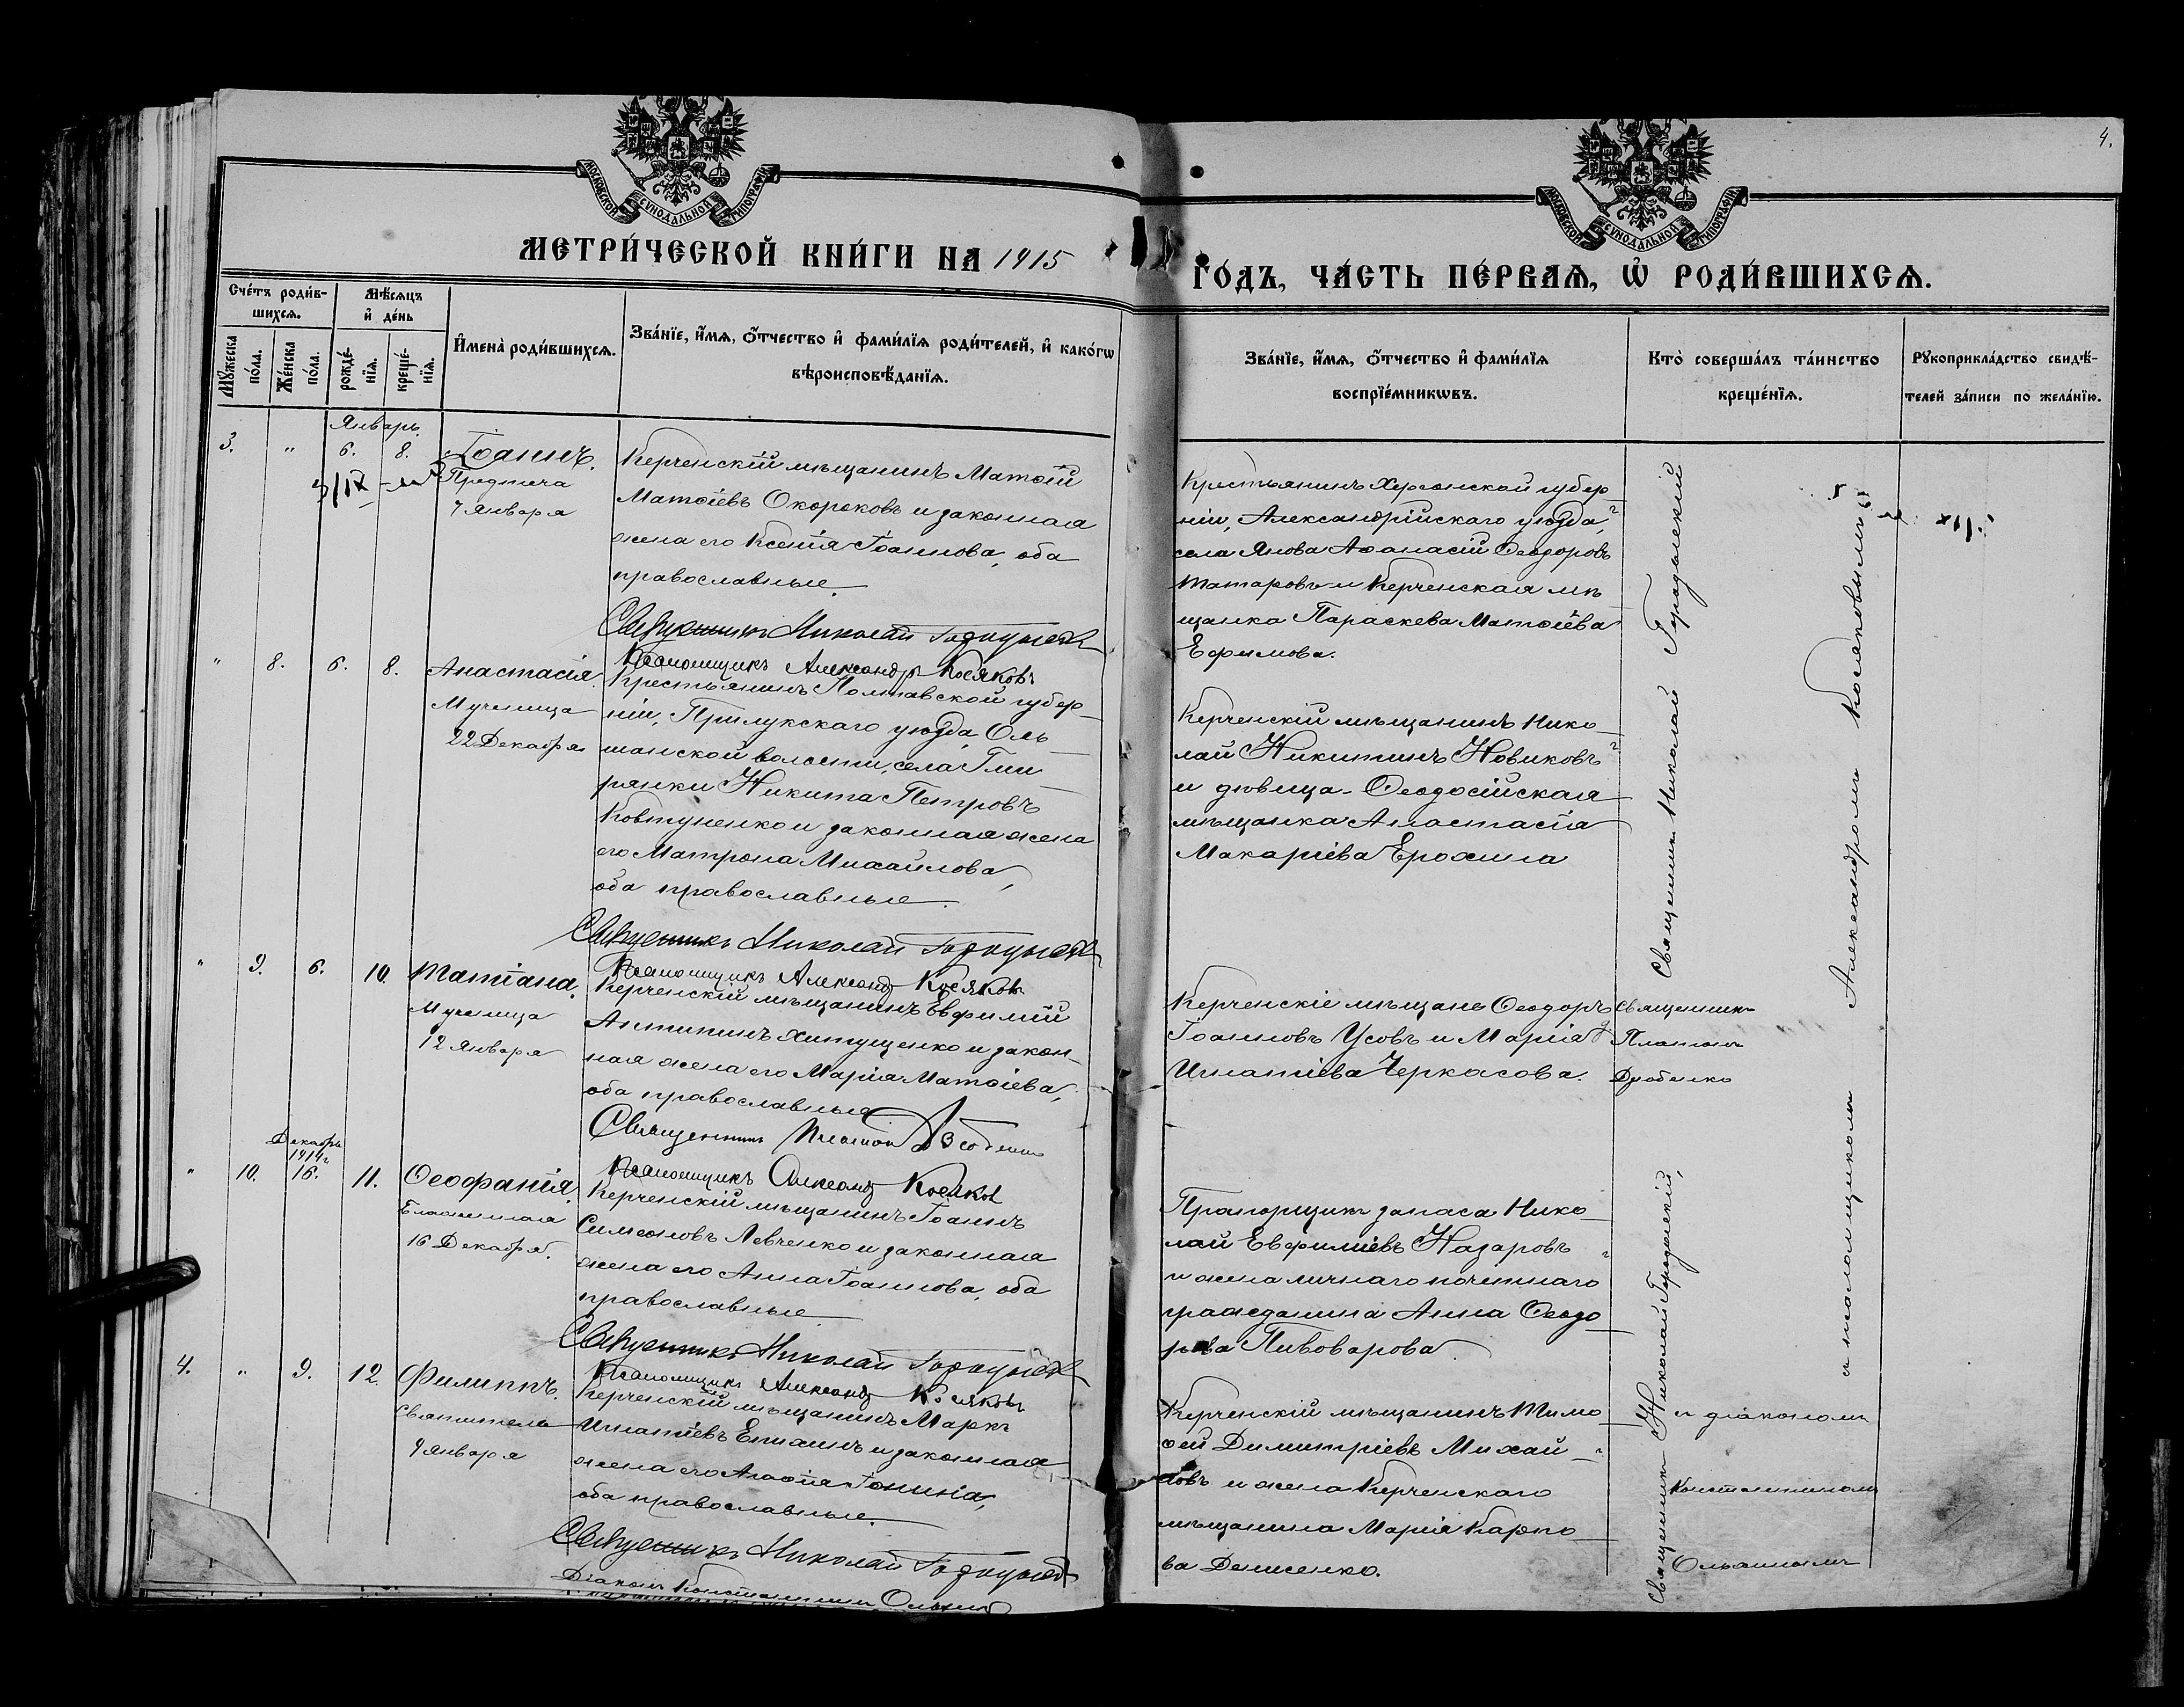 4.
МОСКОВСКОЙ СѴНОДАЛЬНОЙ ТИПОГРАФІИ
МОСКОВСКОЙ СѴНОДАЛЬНОЙ ТИПОГРАФІИ
МЕТРИ́ЧЕСКОЙ КНИ́ГИ НА 1915
ГО́ДЪ, ЧА́СТЬ ПЕ́РВАѦ, Ѡ҆ РОДИ́ВШИХСѦ.
Сче́тъ роди́в-
шихсѧ.
Мѣ́сѧцъ
и҆ де́нь
Мꙋ́жеска
по́ла.
Же́нска
по́ла.
рожде́-
нїѧ.
креще́-
нїѧ.
И҆мена̀ роди́вшихсѧ.
Зва́нїе, и҆́мѧ, ѻ҆́тчество и҆ фами́лїѧ роди́телей, и҆ како́гѡ
вѣроисповѣ́данїѧ.
Зва́нїе, и҆́мѧ, ѻ҆́тчество и҆ фами́лїѧ
воспрїе́мникѡвъ.
Кто̀ соверша́лъ та́инство
креще́нїѧ.
Рꙋкоприкла́дство свидѣ́-
телей за́писи по жела́нїю.
Январь.
3. " 6. 8. Іоаннъ.
Предтеча
7 Января
Керченскій мѣщанинъ Матѳій
Матѳіевъ Окороковъ и законная
жена его Ксенія Іоаннова, оба
православные.
Священникъ Николай Городынскій
Псаломщикъ Александръ Косяковъ
Крестьянинъ Херсонской губер-
ніи, Александрійскаго уѣзда,
села Янова Аѳанасій Ѳеодоровъ
Татаровъ и Керченская мѣ-
щанка Параскева Матѳіева
Ефимова.
" 8. 6. 8. Анастасія.
Мученица
22 Декабря
Крестьянинъ Полтавской губер-
ніи, Прилукскаго уѣзда, Оль-
шанской волости, села Гми-
рянки Никита Петровъ
Ковтуненко и законная жена
его Матрона Михаилова,
оба православные.
Священникъ Николай Городынскій
Псаломщикъ Александръ Косяковъ
Керченскій мѣщанинъ Нико-
лай Никитинъ Новиковъ
и дѣвица - Ѳеодосійская
мѣщанка Анастасія
Макаріева Ерохина
Священникъ Николай
" 9. 6. 10. Татіана.
Мученица
12 Января
Керченскій мѣщанинъ Евфимій
Антипинъ Хитущенко и закон-
ная жена его Марія Матѳіева,
оба православные
Священникъ Платонъ
Псаломщикъ Александръ Косяковъ
Керченскіе мѣщане Ѳеодоръ
Іоанновъ Усовъ и Марія
Игнатіева Черкасова.
Священникъ
Платонъ
Декабрь
1914 г.
" 10. 16. 11. Ѳеофанія.
Блаженная
16 Декабря.
Керченскій мѣщанинъ Іоаннъ
Симеоновъ Левченко и законная
жена его Анна Іоаннова, оба
православные
Священникъ Николай Городынскій
Псаломщикъ Александръ Косяковъ
Прапорщикъ запаса Нико-
лай Евфиміевъ Назаровъ
и жена личнаго почетнаго
гражданина Анна Ѳеодо-
рова Пивоварова.
4. " 9. 12. Филиппъ.
Святителя
9 Января
Керченскій мѣщанинъ Маркъ
Игнатіевъ Епихинъ и законная
жена его Агаѳія Іонина,
оба православные.
Священникъ Николай Городынскій
Діаконъ Константинъ
Керченскій мѣщанинъ Тимо-
ѳей Димитріевъ Михай-
ловъ и жена Керченскаго
мѣщанина Марія Карпо-
ва Денисенко.
Священникъ Николай Городынскій,
съ діакономъ
Константиномъ
и псаломщикомъ Александромъ Косяковымъ